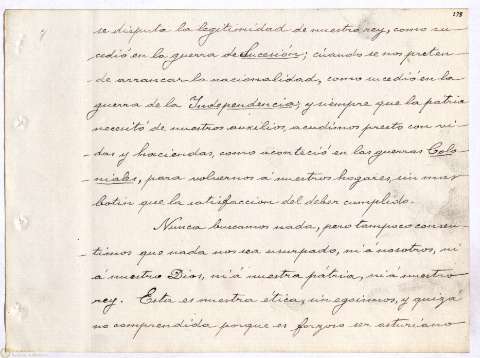 178
se disputa la legitimidad de nuestro rey, como su-
cedió en la guerra de Sucesión; cuando se nos preten-
de arrancar la nacionalidad, como sucedió en la
guerra de la Independencia; y siempre que la patria
necesitó de nuestros auxilios, acudimos presto con vi-
das y haciendas, como aconteció en las guerras Colo-
niales, para volvernos a nuestros hogares, sin mas
botin que la satisfaccion del deber cumplido.
Nunca buscamos nada, pero tampoco consen-
timos que nada nos sea usurpado, ni á nosotros, ni
á nuestro Dios, ni á nuestra pátria, ni á nuestro
rey. Esta es nuestra ética, sin egoismos, y quizá
no comprendida porque es forzoso ser asturiano